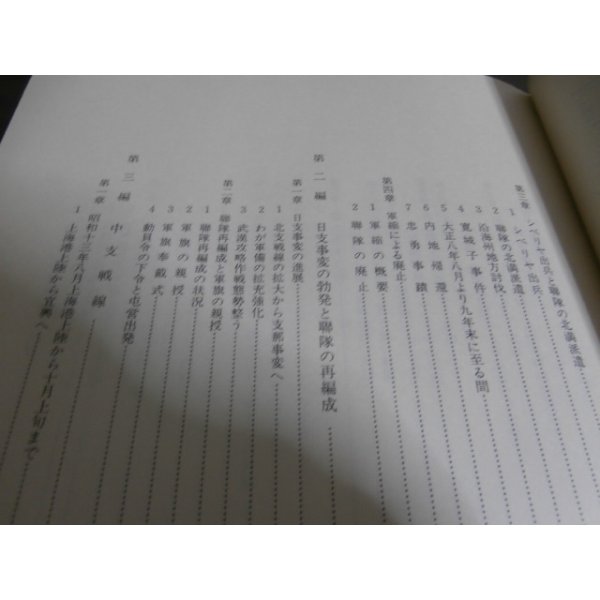 第三章 シベリヤ出兵と聯隊の北満派遣
1 シベリヤ出兵
2 聯隊の北満派遣
3 沿海州地方討伐
4 寛城子事件
5 大正八年八月より九年末に至る間
6 内地帰還
7 忠勇事蹟
第四章 軍縮による廃止
1 軍縮の概要
2 聯隊の廃止
第二編 日支事変の勃発と聯隊の再編成
第一章 日支事変の進展
1 北支戦線の拡大から支那事変へ
2 わが軍備の拡充強化
3 武漢攻略作戦態勢整う
第二章 聯隊再編成と軍旗の親授
1 聯隊再編成の状況
2 軍旗の親授
3 軍旗奉戴式
4 動員令の下令と屯営出発
第三編 中支戦線
第一章 昭和十三年八月上海港上陸から十月上旬まで
1 上海港上陸から宜興へ